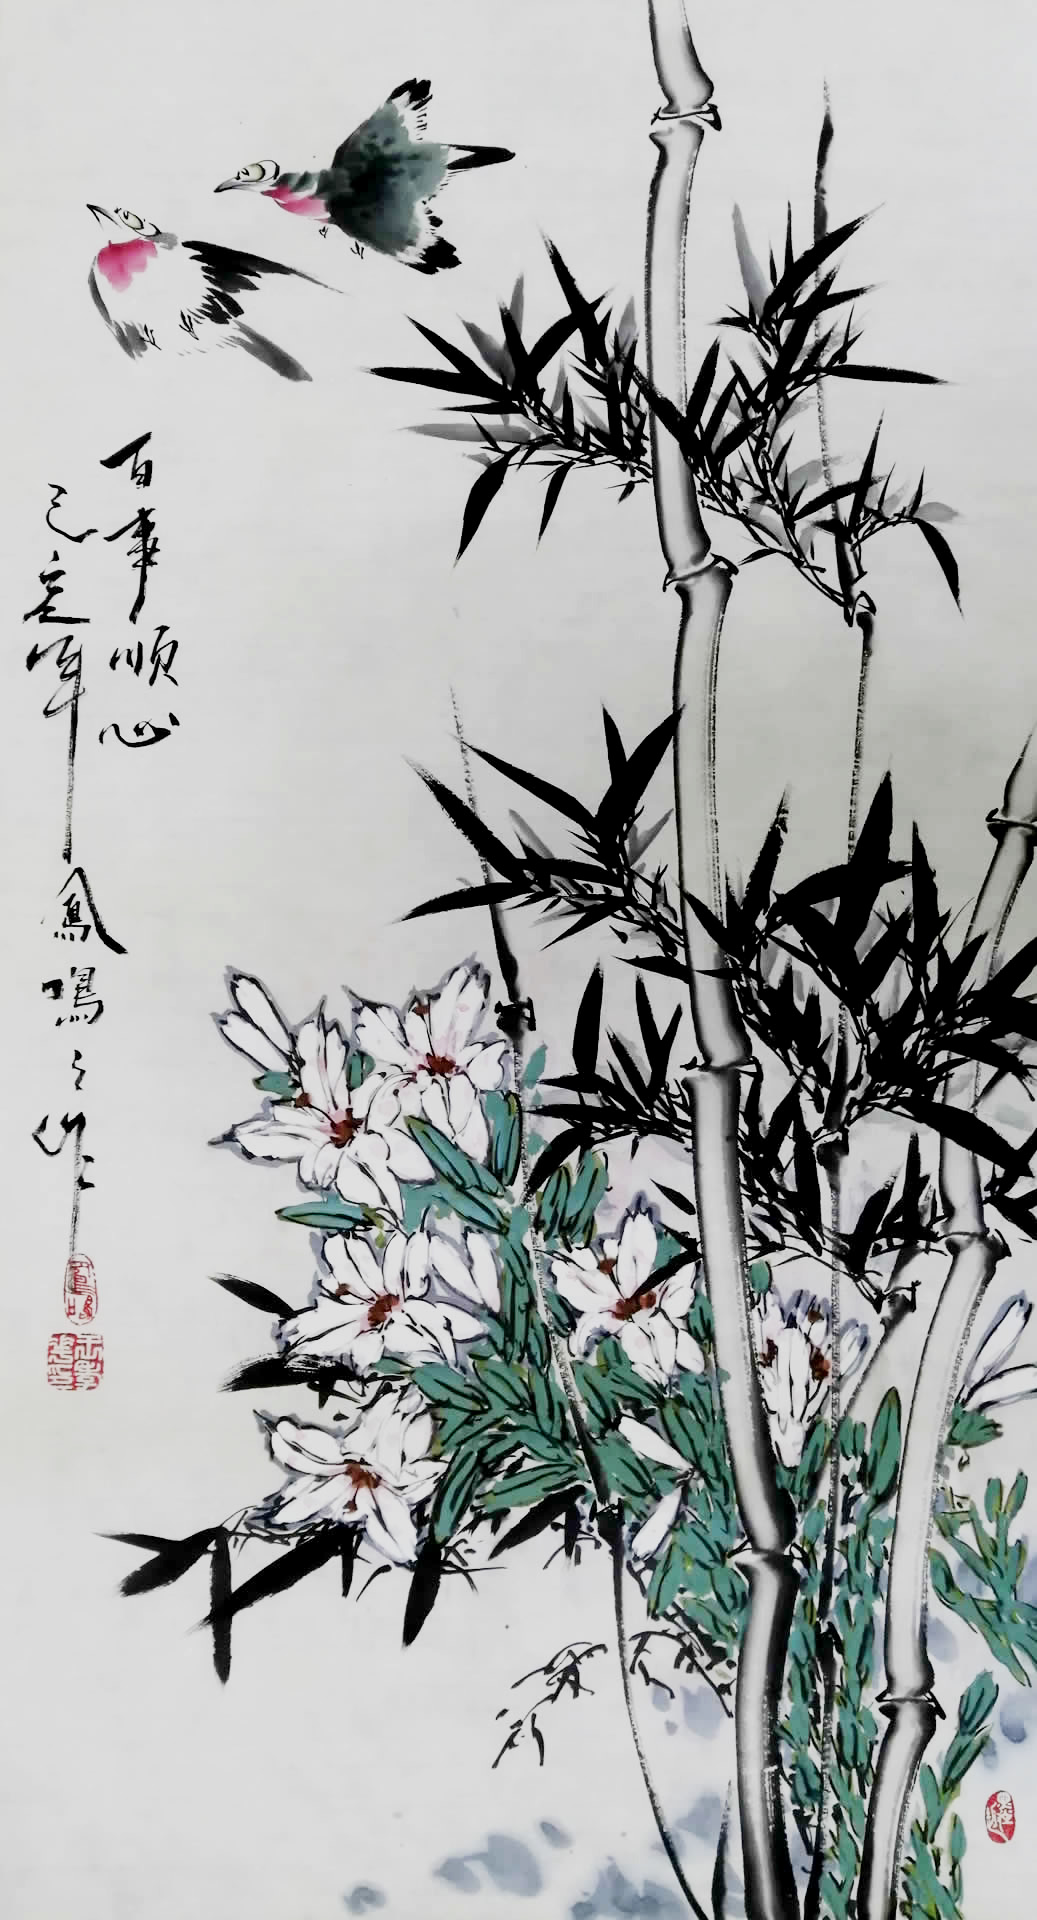 百事顺心
己亥年
鳳鳴之作